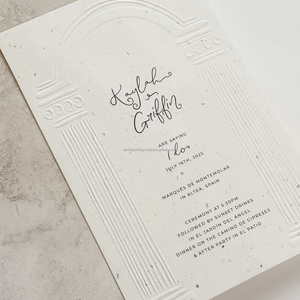 Kaylah
&
Griffin
ARE SAYING
I do
JULY 16TH, 2025
MARQUÉS DE MONTEMOLAR
IN ALTEA, SPAIN
CEREMONY AT 5:30PM
FOLLOWED BY SUNSET DRINKS
IN EL JARDIN DEL ANGEL
DINNER ON THE CAMINO DE CIPRESES
& AFTER PARTY IN EL PATIO